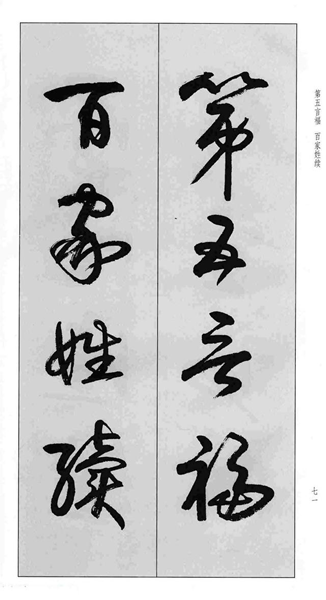 第五言福
百家姓续
第五言福 百家姓续
七一